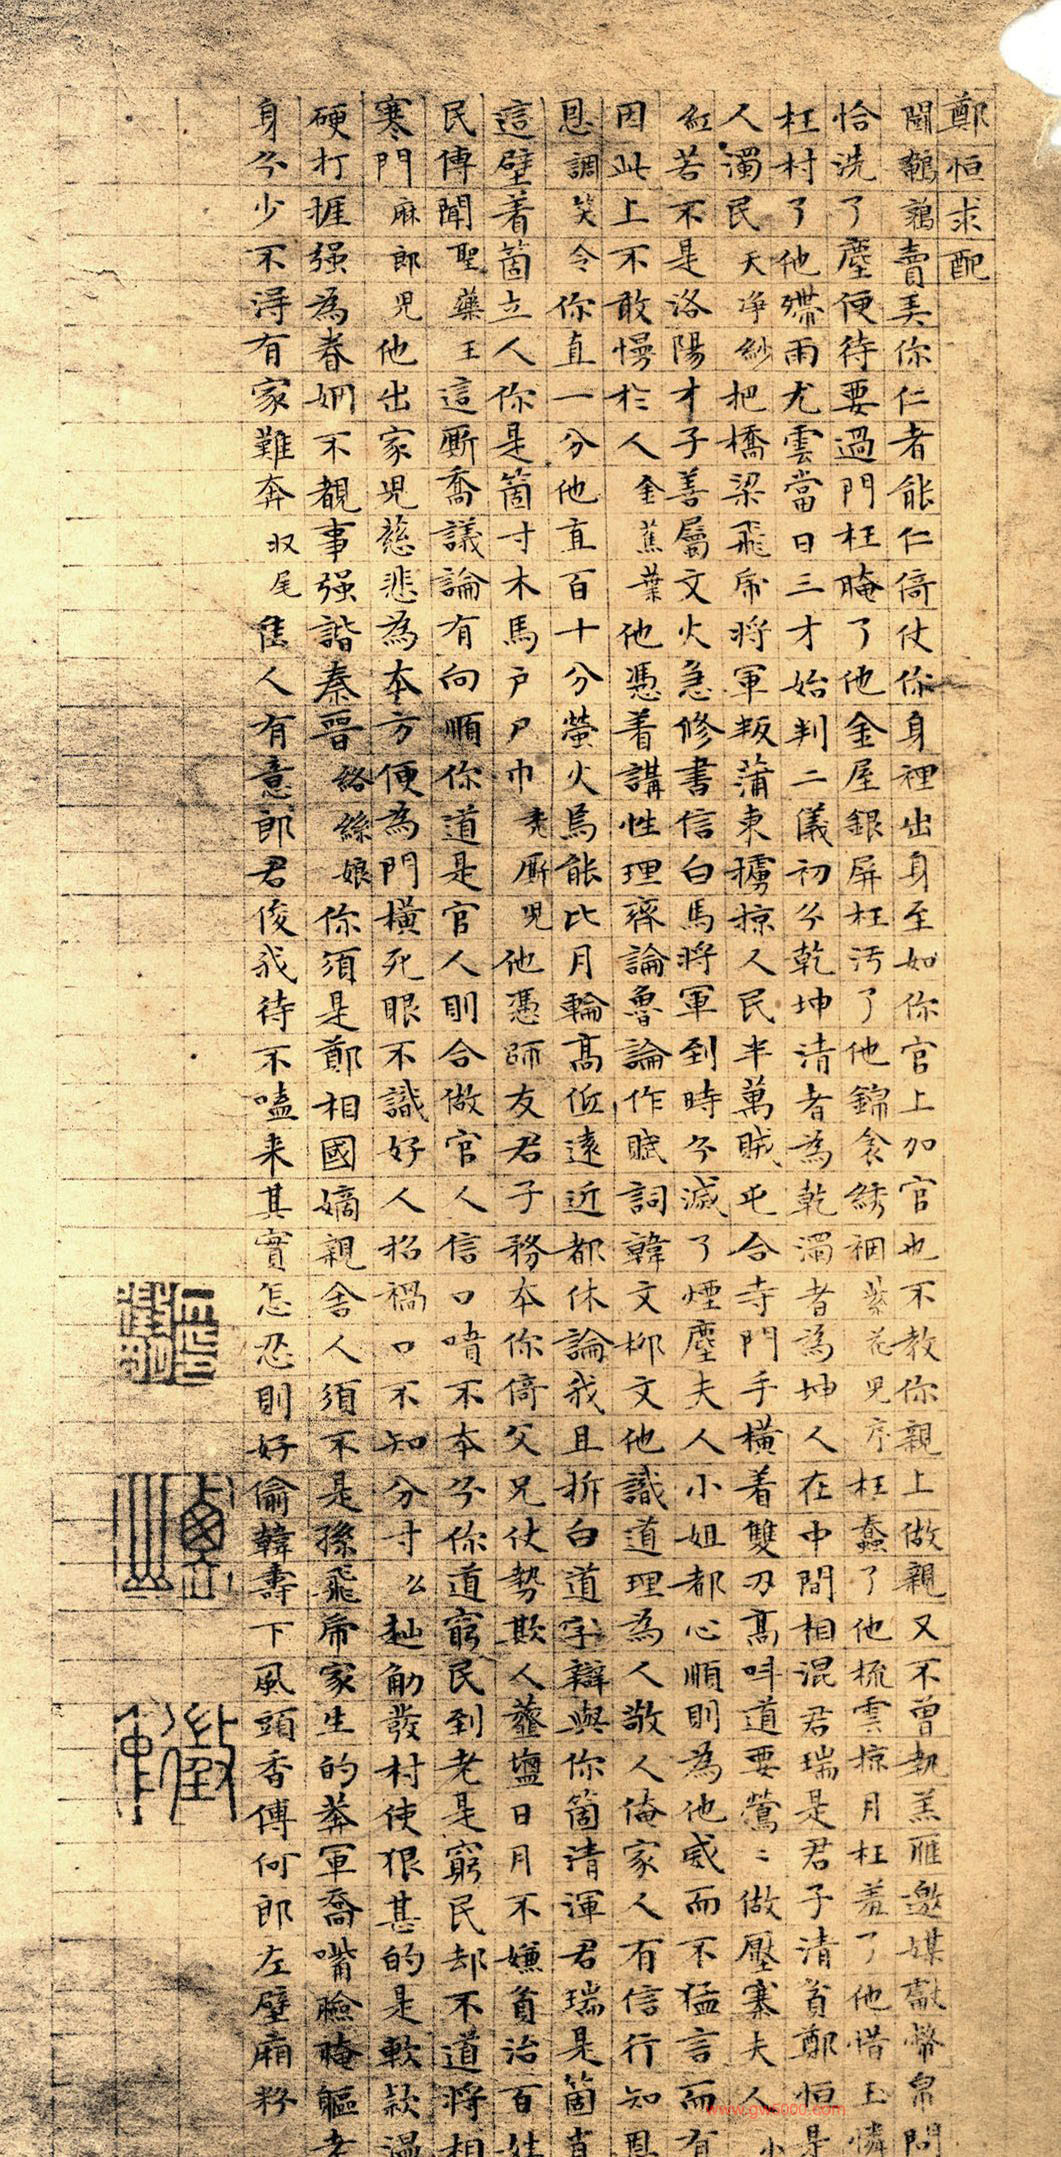 鄭恒求配
鬪鵪鶉賣美你仁者能仁倚仗你身裡出身至如你官上加官也不教你親上做親又不曽執羔雁邀媒獻幣帛問
恰洗了塵便待要過門枉腌了他金屋銀屏枉汚了他錦衾綉裀紫花兒序枉蠢了他梳雲掠月枉羞了他惜玉憐
枉村了他殢雨尤雲當日三才始判二儀初分乾坤清者為乾濁者為坤人在中間相混君瑞是君子清貧鄭恒是
人濁民天净紗把橋梁飛虎將軍叛蒲東擄掠人民半萬賊屯合寺門手橫着雙刃高呌道要鶯〻做壓寨夫人小
紅若不是洛陽才子善屬文火急修書信白馬將軍到時分滅了煙塵夫人小姐都心順則為他威而不猛言而有
因此上不敢慢於人金蕉葉他憑着講性理齊論魯論作賦詞韓文柳文他識道理為人敬人俺家人有信行知恩
恩調笑令你直一分他直百十分螢火焉能比月輪高低遠近都休論我且拆白道字辯與你箇清渾君瑞是箇肖
這壁着箇立人你是箇寸木馬戶尸巾禿厮兒他憑師友君子務本你倚父兄仗勢欺人虀鹽日月不嫌貧治百姓
民傳聞聖藥王這厮喬議論有向順你道是官人則合做官人信口噴不本分你道窮民到老是窮民却不道將相
寒門麻郎兒他出家兒慈悲為本方便為門橫死眼不識好人招禍口不知分寸么赸觔發村使狠甚的是軟欵温
硬打捱强為眷姻不覩事强諧秦晉絡絲娘你須是鄭相國嫡親舍人須不是孫飛虎家生的莽軍喬嘴臉腌軀老
身分少不得有家難奔収尾隹人有意郎君俊我待不嗑来其實怎忍則好偷韓壽下風頭香傅何郎左壁廂粉
www.gw5000.com